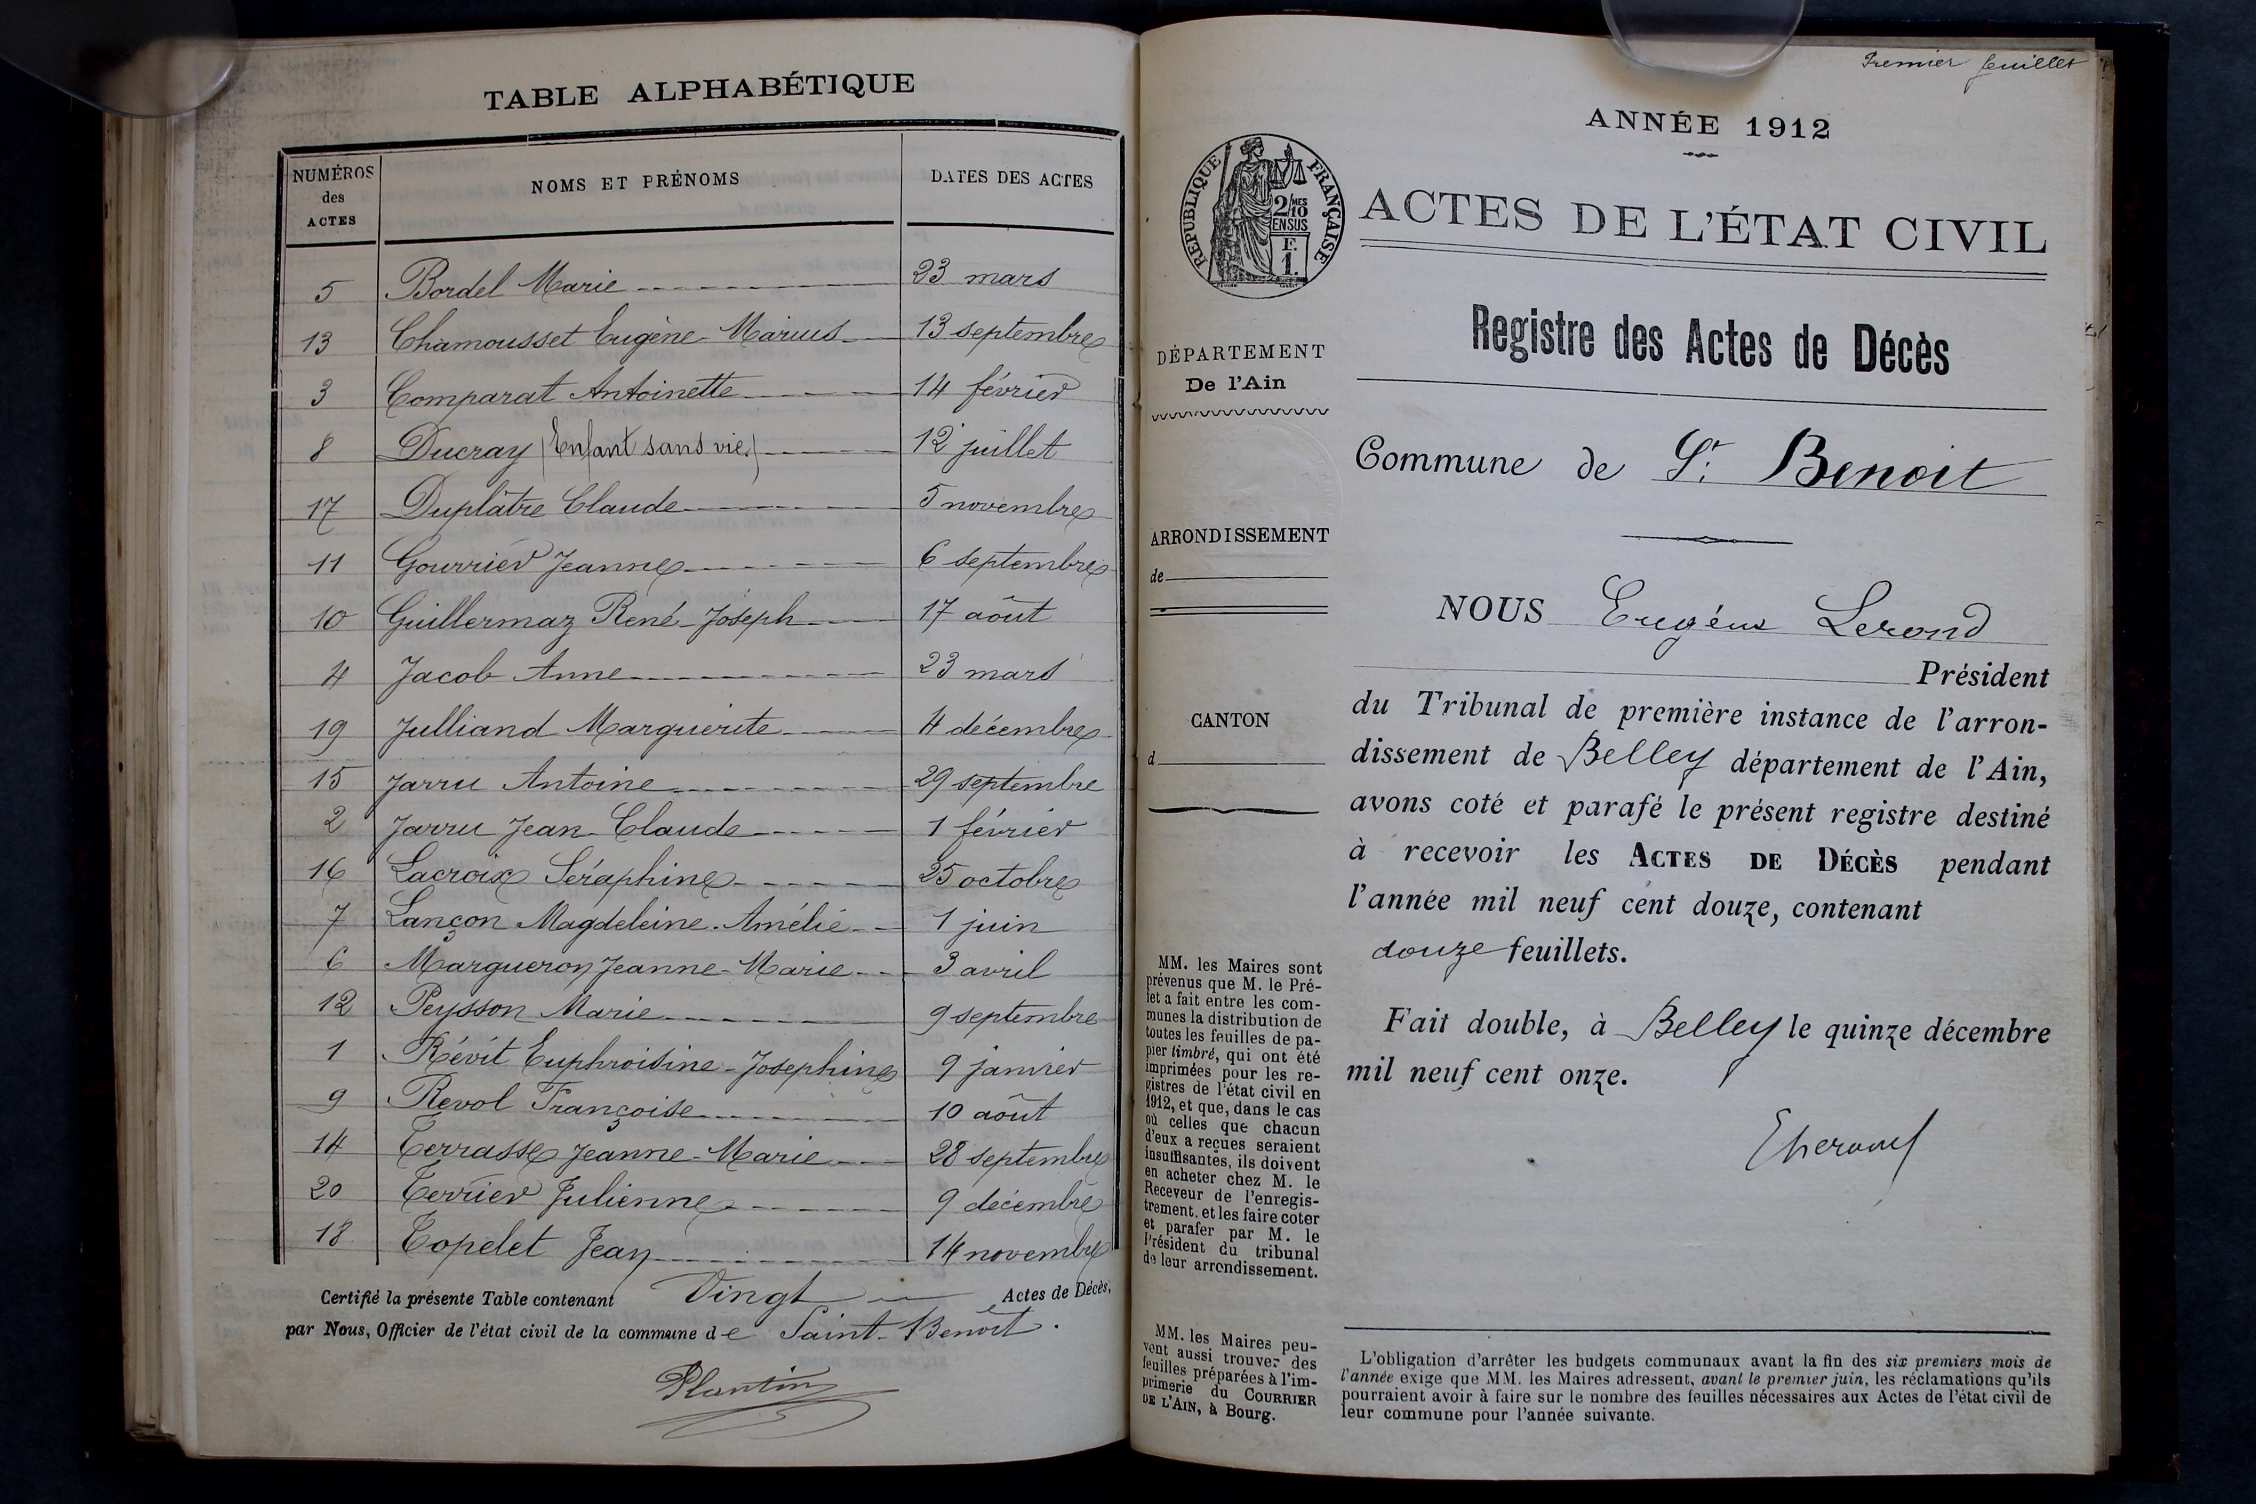 TABLE ALPHABÉTIQUE
NUMÉROS des ACTES NOMS ET PRÉNOMS DATES DES ACTES
5 Bordel Marie 23 mars
13 Chamousset Eugène-Marius 13 septembre
3 Comparat Antoinette 14 février
8 Ducray (Enfant sans vie) 12 juillet
17 Duplâtre Claude 5 novembre
11 Gourrier Jeanne 6 septembre
10 Guillermaz René-Joseph 17 août
4 Jacob Anne 23 mars
19 Julliand Marguerite 4 décembre
15 Jarru Antoine 29 septembre
2 Jarru Jean-Claude 1 février
16 Lacroix Séraphine 25 octobre
7 Lançon Magdeleine-Amélie 1 juin
6 Margueron Jeanne-Marie 3 avril
12 Peysson Marie 9 septembre
1 Révit Euphroisine-Josephine 9 janvier
9 Revol Françoise 10 août
14 Terrasse Jeanne-Marie 28 septembre
20 Terrier Julienne 9 décembre
18 Topelet Jean 14 novembre
Certifié la présente Table contenant Vingt Actes de Décès,
par Nous, Officier de l'état civil de la commune de Saint-Benoît.
Plantin
Premier feuillet
ANNÉE 1912
RÉPUBLIQUE FRANÇAISE
2/10 MES
EN SUS
F.
1.
ACTES DE L'ÉTAT CIVIL
Registre des Actes de Décès
DÉPARTEMENT
De l'Ain
ARRONDISSEMENT
de
CANTON
d
MM. les Maires sont
prévenus que M. le Pré-
fet a fait entre les com-
munes la distribution de
toutes les feuilles de pa-
pier timbré, qui ont été
imprimées pour les re-
gistres de l'état civil en
1912, et que, dans le cas
où celles que chacun
d'eux a reçues seraient
insuffisantes, ils doivent
en acheter chez M. le
Receveur de l'enregis-
trement, et les faire coter
et parafer par M. le
Président du tribunal
de leur arrondissement.
MM. les Maires peu-
vent aussi trouver des
feuilles préparées à l'im-
primerie du COURRIER
DE L'AIN, à Bourg.
Commune de St. Benoit
NOUS Eugène Lerond
Président
du Tribunal de première instance de l'arron-
dissement de Belley département de l'Ain,
avons coté et parafé le présent registre destiné
à recevoir les ACTES DE DÉCÈS pendant
l'année mil neuf cent douze, contenant
douze feuillets.
Fait double, à Belley le quinze décembre
mil neuf cent onze.
L'obligation d'arrêter les budgets communaux avant la fin des six premiers mois de
l'année exige que MM. les Maires adressent, avant le premier juin, les réclamations qu'ils
pourraient avoir à faire sur le nombre des feuilles nécessaires aux Actes de l'état civil de
leur commune pour l'année suivante.